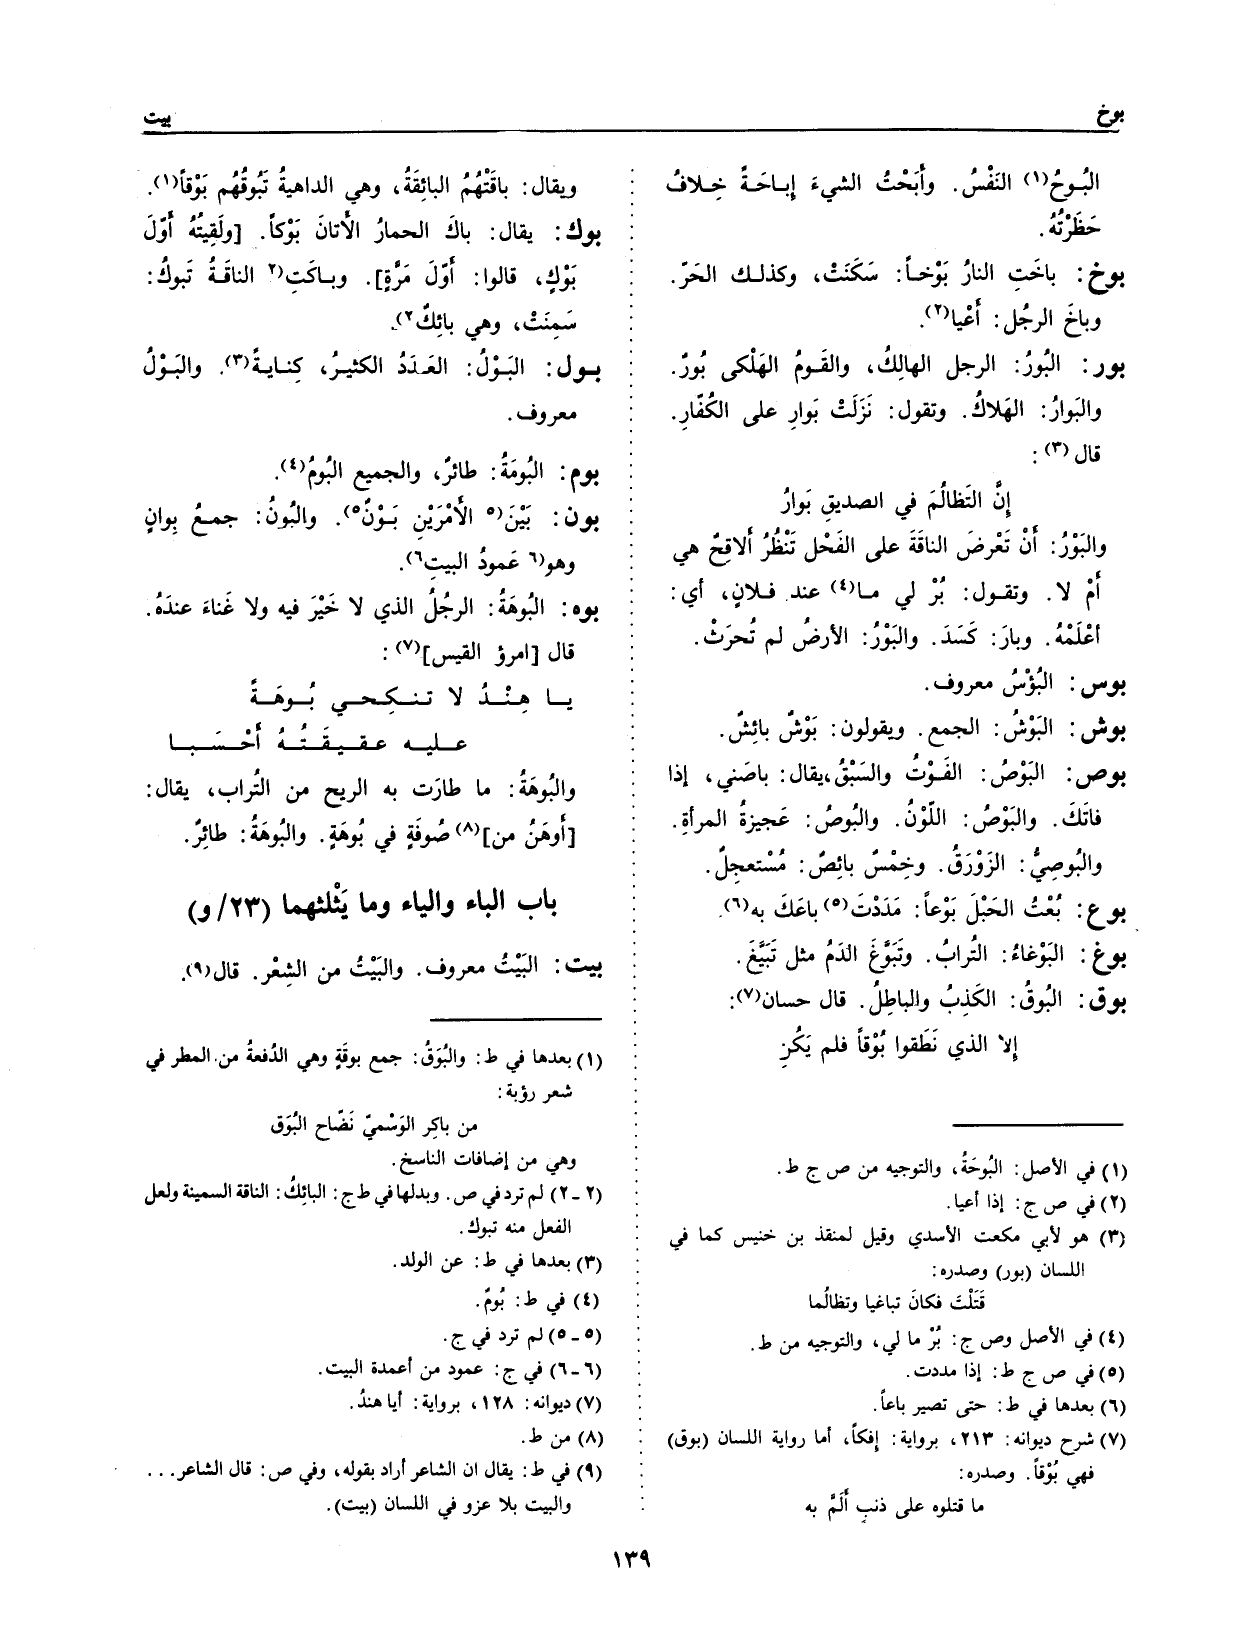 بوخ
بيت
البُـوحُ(١) النَفْسُ. وأَبَحْتُ الشيءَ إِبـاحَـةً خِـلافُ
حَظَرْتُهُ.
بوخ: باخَتِ النارُ بَوْخـاً: سَكَنَتْ، وكذلـك الحَرّ.
وباخَ الرجُل: أَعْيا(٢).
بور: البُورُ: الرجل الهالِكُ، والقَـومُ الهَلْكى بُورٌ.
والبَوارُ: الهَلاكُ. وتقول: نَزَلَتْ بَوارِ على الكُفّارِ.
قال(٣):
إنَّ التَظالُمَ في الصديقِ بَوارُ
والبَوْرُ: أنْ تَعْرِضَ الناقَةَ على الفَحْل تَنْظُرُ أَلاقِحٌ هي
أمْ لا. وتقـول: بُرْ لي مـا(٤) عند فـلانٍ، أي:
أعْلَمْهُ. وبارَ: كَسَدَ. والبَوْرُ: الأرضُ لم تُحرَثْ.
بوس: البُؤْسُ معروف.
بوش: البَوْشُ: الجمع. ويقولون: بَوْشٌ بائِشٌ.
بوص: البَوْصُ: الفَـوْتُ والسَبْقُ،يقال: باصَني، إذا
فاتَكَ. والبَوْصُ: اللّوْنُ. والبُوصُ: عَجيزةُ المرأةِ.
والبُوصِيُّ: الزَوْرَقُ. وخِمْسٌ بائِصٌ: مُسْتعجِلٌ.
بوع: بُعْتُ الحَبْلَ بَوْعاً: مَدَدْتَ(٥) باعَكَ به(٦).
بوغ: البَوْغاءُ: التُرابُ. وتَبَوَّغَ الدَمُ مثل تَبَيَّغَ.
بوق: البُوقُ: الكَذِبُ والباطِلُ. قال حسان(٧):
إلا الذي نَطَقوا بُوْقاً فلم يَكُنِ
(١) في الأصل: البُوحَةُ، والتوجيه من ص ج ط.
(٢) في ص ج: إذا أعيا.
(٣) هو لأبي مكعت الأسدي وقيل لمنقذ بن خنيس كما في
اللسان (بور) وصدره:
قَتَلْتَ فكانَ تباغيا وتظالُما
(٤) في الأصل وص ج: بُرْ ما لي، والتوجيه من ط.
(٥) في ص ج ط: إذا مددت.
(٦) بعدها في ط: حتى تصير باعاً.
(٧) شرح ديوانه: ٢١٣، برواية: إفكاً، أما رواية اللسان (بوق)
فهي بُوْقاً. وصدره:
ما قتلوه على ذنبٍ أَلَمَّ به
ويقال: باقَتْهُم البائِقَةُ، وهي الداهيةُ تَبُوقُهُم بَوْقاً(١).
بوك: يقال: باكَ الحمارُ الأَتانَ بَوْكاً. [ولَقِيتُهُ أَوّلَ
بَوْكٍ، قالوا: أَوّلَ مَرَّةٍ]. وبـاكَتِ(٢ الناقَـةُ تَبوكُ:
سَمِنَتْ، وهي بائِكٌ٢).
بـول: البَـوْلُ: العَـدَدُ الكثيـرُ، كِنـايـةً(٣). والبَـوْلُ
معروف.
بوم: البُومَةُ: طائرٌ، والجميع البُومُ(٤).
بون: بَيْنَ(٥ الأَمْرَيْنِ بَـوْنٌ٥). والبُونُ: جمـعُ بِوانٍ
وهو(٦ عَمودُ البيتِ٦).
بوه: البُوهَةُ: الرجُلُ الذي لا خَيْرَ فيه ولا غَناءَ عندَهُ.
قال [امرؤ القيس](٧):
يـا هِنْـدُ لا تـنـكِـحـي بُـوهَـةً
عـلـيـه عـقـيـقَـتُـهُ أَحْـسَـبـا
والبُوهَةُ: ما طارَت به الريح من التُراب، يقال:
[أوهَنُ من](٨) صُوفَةٍ في بُوهَةٍ. والبُوهَةُ: طائِرٌ.
باب الباء والياء وما يَثْلثهما (٢٣/ و)
بيت: البَيْتُ معروف. والبَيْتُ من الشِعْر. قال(٩).
(١) بعدها في ط: والبُوَقُ: جمع بوقَةٍ وهي الدُفعةُ من المطر في
شعر رؤبة:
من باكِر الوَسْميّ نَضّاح البُوَق
وهي من إضافات الناسخ.
(٢-٢) لم ترد في ص. وبدلها في ط ج: البائِكُ: الناقة السمينة ولعل
الفعل منه تبوك.
(٣) بعدها في ط: عن الولد.
(٤) في ط: بُومٌ.
(٥-٥) لم ترد في ج.
(٦-٦) في ج: عمود من أعمدة البيت.
(٧) ديوانه: ١٢٨، برواية: أيا هندُ.
(٨) من ط.
(٩) في ط: يقال ان الشاعر أراد بقوله، وفي ص: قال الشاعر...
والبيت بلا عزو في اللسان (بيت).
١٣٩